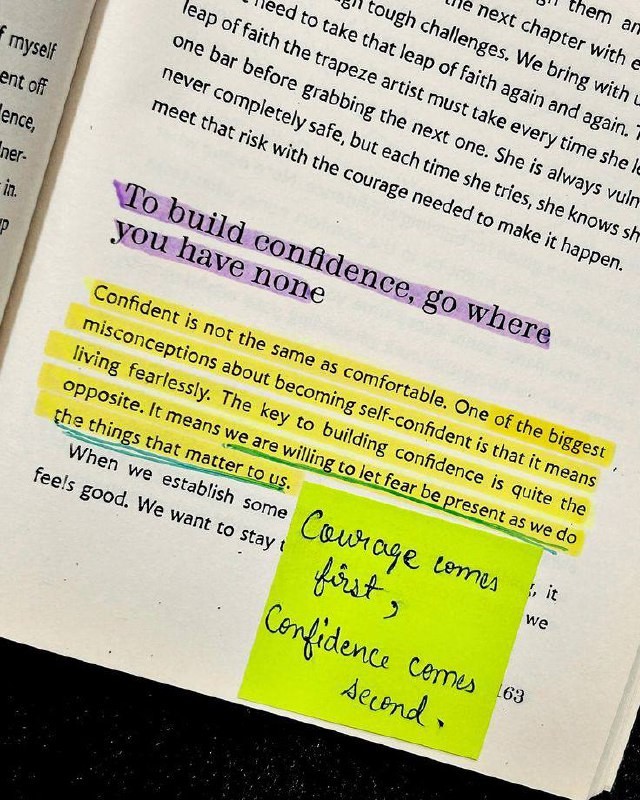 f myself
ent off
lence,
lner-
in.
up
them an
the next chapter with e
gh tough challenges. We bring with u
need to take that leap of faith again and again. T
leap of faith the trapeze artist must take every time she le
one bar before grabbing the next one. She is always vuln
never completely safe, but each time she tries, she knows sh
meet that risk with the courage needed to make it happen.
To build confidence, go where
you have none
Confident is not the same as comfortable. One of the biggest
misconceptions about becoming self-confident is that it means
living fearlessly. The key to building confidence is quite the
opposite. It means we are willing to let fear be present as we do
the things that matter to us.
When we establish some
, it
feels good. We want to stay
we
Courage comes
first,
Confidence comes
second.
163